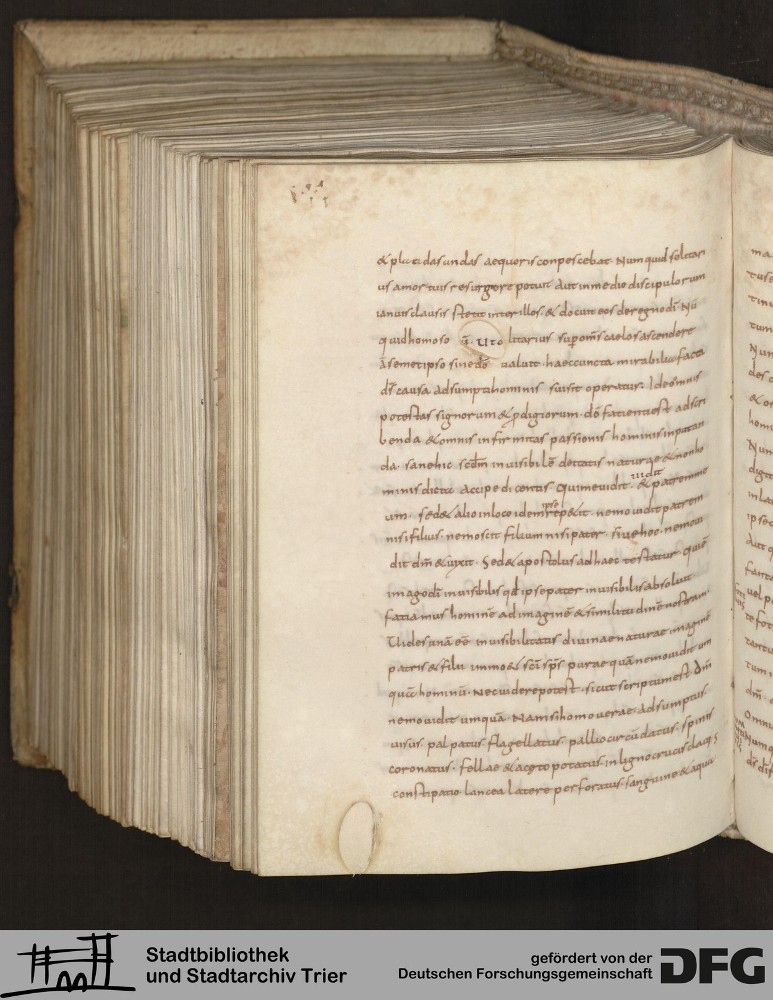 & placidas undas aequoris conpescebat. Numquid solitari
us a mortuis resurgere potuit Aut in medio discipulorum
ianuis clausis stetit inter illos. & docuit eos de regno dī. Nū
quid homo so ut o litarius sup oms caelos ascendere
a semetipso sine dō ualuit. haec cuncta mirabilia facta
dī causa adsumpti hominis suisit operatus. Ideo omnis
potestas signorum & prodigiorum dō facienti est adscri
benda & omnis infirmitas passionis homini sit inputan
da. sane hic scdm inuisibilē deitatis naturae & non ho
minis dictū accipe dicentis Qui me uidit. uidit & patrem me
um. sed & alio in loco idem ipse repetit. nemo uidit patrem
nisi filius. nemo scit filium nisi pater. siue hoc. nemo ui
dit dm & uixit. Sed & apostolus ad haec testatur. quiē
imago dī inuisibilis qd ipse pater inuisibilis absoluit
faciamus hominē ad imaginē & similitudinē nostram.
Uides unā eē inuisibilitatis diuinae naturae imaginē
patris & filii immo & sci sps purae quā nemo uidit um
quā hominū. Nec uidere potest. sicut scriptum est. Dm
nemo uidit umquā. Nam is homo uerae adsumptus.
uisus. palpatus flagellatus pallio circūdatus. spinis
coronatus. felle & aceto potatus. in ligno crucis clauis
constipatio. lancea latere perforatus. sanguine & aqua
Stadtbibliothek
und Stadtarchiv Trier
gefördert von der
Deutschen Forschungsgemeinschaft
DFG